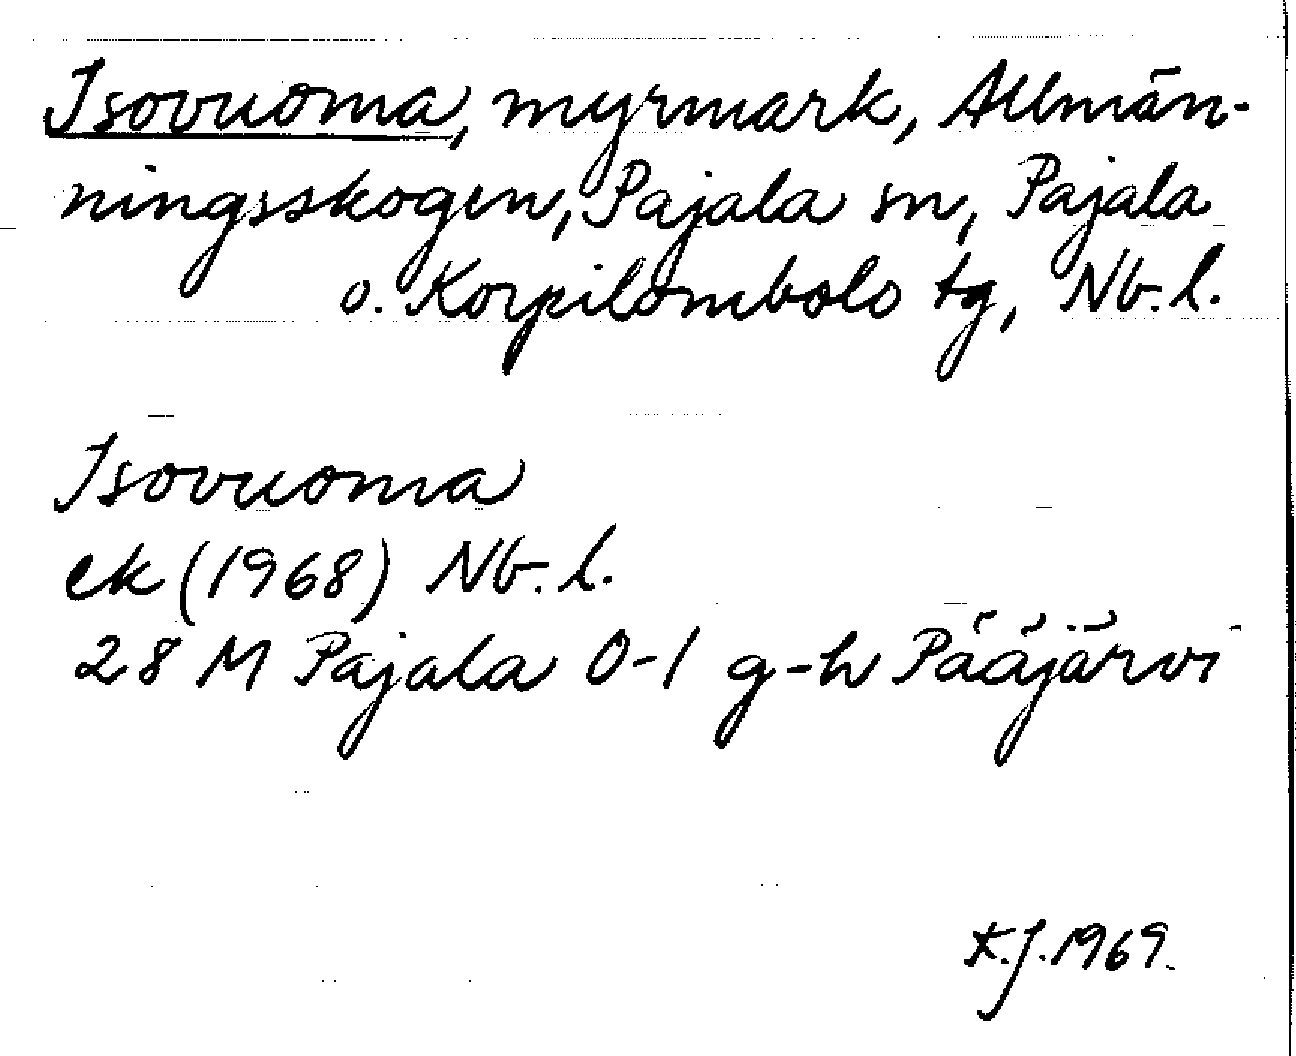 Isovuoma, myrmark, Allmän-
ningsskogen, Pajala sn, Pajala
o. Korpilombolo tg, Nb. l.
Isovuoma
ek (1968) Nb. l.
28 M Pajala 0-1 g-h Pääjärvi
K.J. 1969.